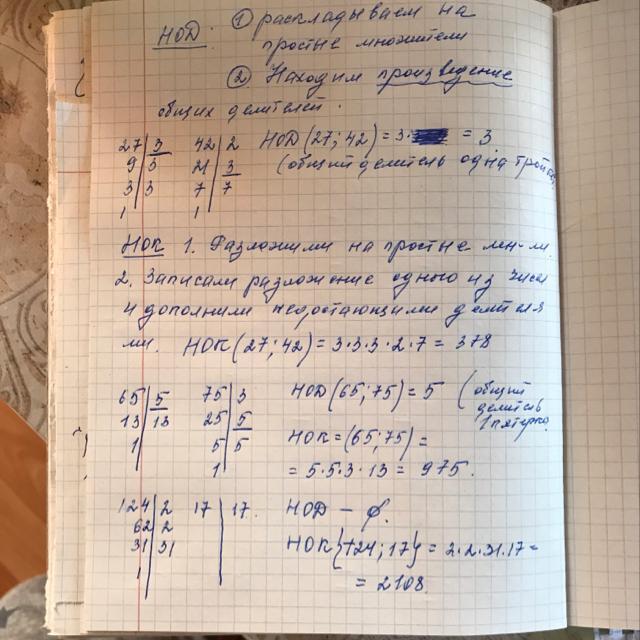 НОД: ① раскладываем на
простые множители
② Находим произведение
общих делителей.
27 | 3   42 | 2   НОД (27; 42) = 3 · = 3
9 | 3   21 | 3   (общий делитель одна тройка
3 | 3   7 | 7
1   1
НОК 1. Разложили на простые мн-ли.
2. Записали разложение одного из чисел
и дополнили недостающими делителя
ми. НОК (27; 42) = 3·3·3·2·7 = 378
65 | 5   75 | 3   НОД (65; 75) = 5 (общий
делитель
13 | 13   25 | 5   1 пятерка
1   5 | 5   НОК = (65; 75) =
1   = 5·5·3·13 = 975.
124 | 2   17 | 17.   НОД – ∅.
62 | 2
31 | 31   НОК {124; 17} = 2·2·31·17 =
1   = 2108.